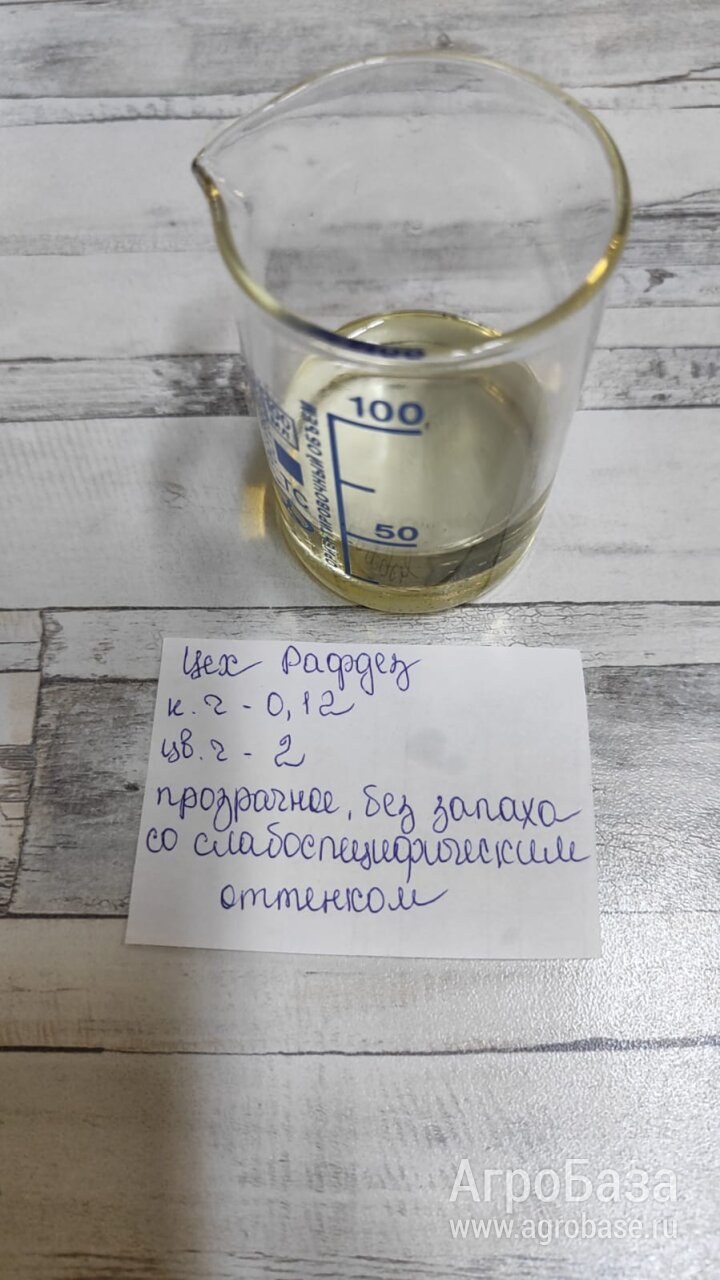 100
50
ОРИЕНТИРОВОЧНЫЙ ОБЪЕМ
Цех Рафдез
к.ч - 0,12
цв.ч - 2
прозрачное, без запаха
со слабоспецифическим
оттенком
АгроБаза
www.agrobase.ru